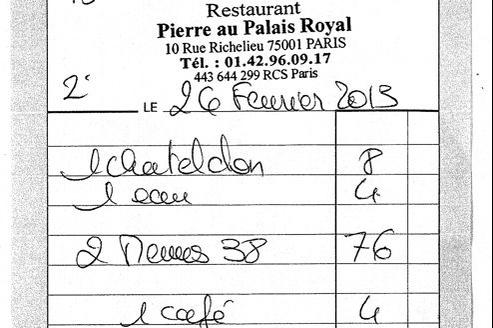 Restaurant
Pierre au Palais Royal
10 Rue Richelieu 75001 PARIS
Tél. : 01.42.96.09.17
443 644 299 RCS Paris
2
LE 26 Fevrier 2013
1 chateldon 8
1 eau 4
2 Menus 38 76
1 café 4